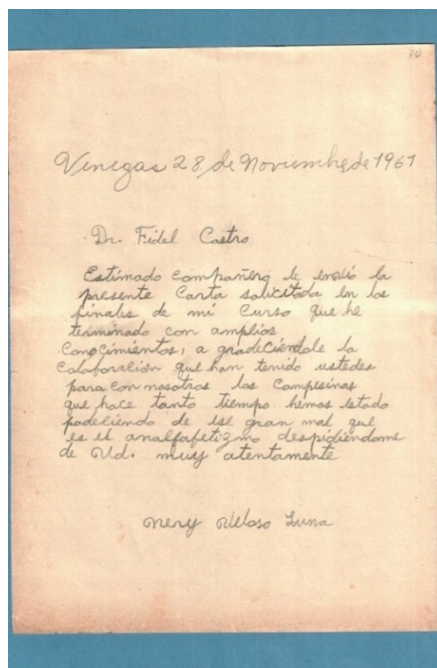 80
Venegas 28 de Noviembre de 1961
Dr. Fidel Castro
Estimado compañero le envió la
presente Carta solicitada en los
finales de mi Curso que he
terminado con amplios
conocimientos, a gradeciendole la
coloboración que han tenido ustedes
para con nosotros los Campesinos
que hace tanto tiempo hemos estado
padeciendo de ese gran mal que
es el analfafetizmo despidiendome
de Ud. muy atentamente
Nery Veloso Luna